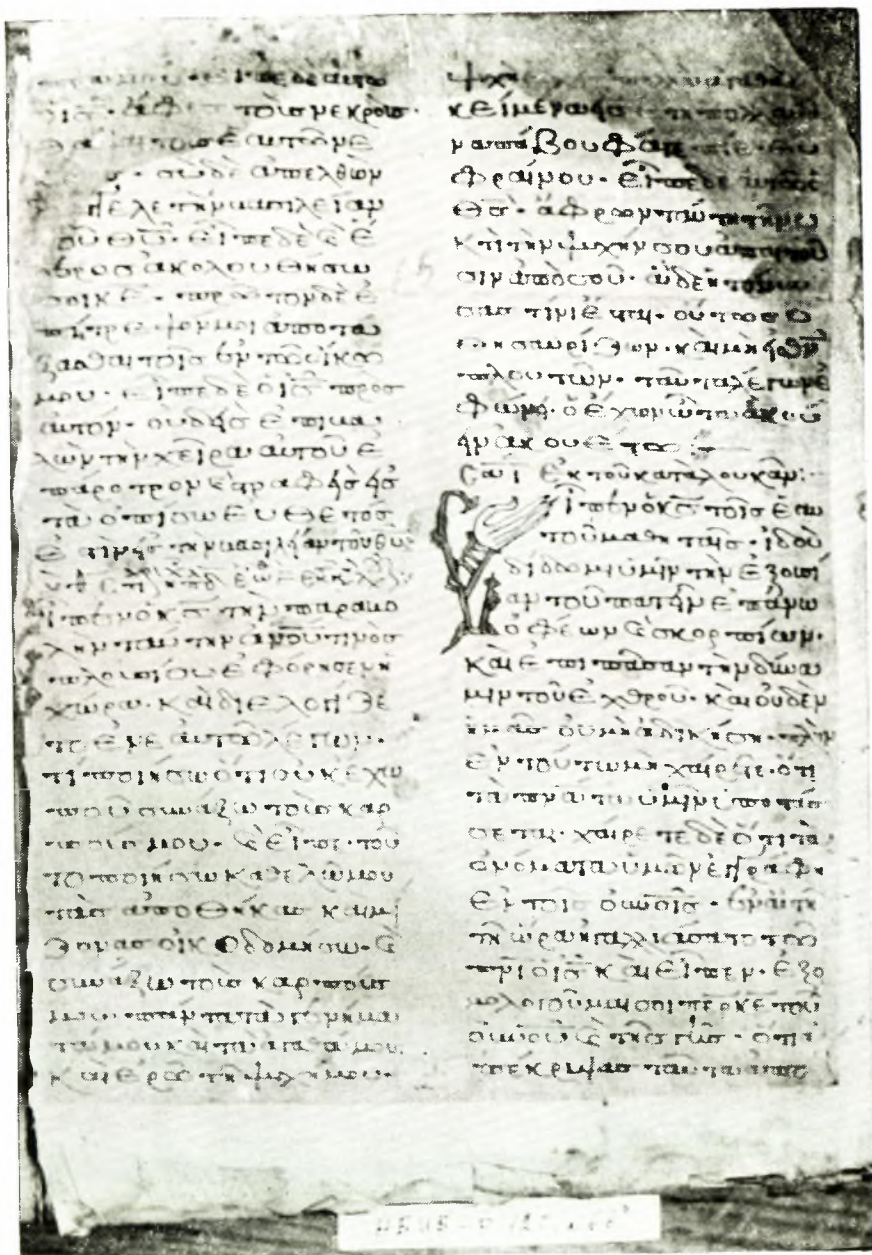 εἶπεδεαυτω
οισ· ἄφεσ τοὺσ νεκρουσ·
θάψαι τοὺσ ἑαυτῶν νε
σὺ δὲ ἀπελθὼν
ελε τὴν βασιλείαν
τοῦ θυ· εἶπε δὲ ϗ ἕ
τεροσ ἀκολουθήσω
σοι κε· πρῶτον δὲ ἐ
πίτρεψόν μοι ἀποτα
ξασθαι τοῖσ ἐν τῶ οἴκω
μου· εἶπε δὲ ὁ ισ προσ
αυτόν· οὐδεὶσ ἐπιβα
λὼν τὴν χεῖρα αυτοῦ ἐ
π᾽ αροτρον ϗ στραφεὶσ εἰσ
τὰ ὀπίσω εὔθετόσ
ἐστιν εἰσ τὴν βασιλείαν τοῦ θυ·
ἶπεν ὁ κσ τὴν παραβο
λὴν ταύτην ανου τινὸσ
πλουσίου εὐφόρησεν ἡ
χώρα· καὶ διελογίζε
το ἐν ἑαυτῶ λέγων·
τί ποιήσω ὅτι οὐκ ἔχω
ποῦ συνάξω τοὺσ καρ
ποὺσ μου· ϗ εἶπε· τοῦ
το ποιήσω καθελῶ μου
τὰσ ἀποθήκασ καὶ μεί
ζονασ οἰκοδομήσω· ϗ
συνάξω τοὺσ καρποὺσ
μου πάντα τὰ γενήμα
τά μου καὶ τὰ αγαθά μου
καὶ ἐρῶ τῆ ψυχῆ μου·
ψυχὴ ἔχεισ πολλὰ ἀγαθὰ
κείμενα εἰσ ἔτη πολλὰ
ναπαύου φάγε πίε εὐ
φραίνου· εἶπε δὲ αὐτῶ ὁ
θσ· ἄφρον ταύτη τῆ νυ
κτὶ τὴν ψυχήν σου ἀπαιτοῦ
σιν ἀπὸ σοῦ· ἃ δὲ ἡτοίμα
σασ τίνι ἔσται· οὕτωσ ὁ
θησαυρίζων· καὶ μὴ εἰσ θν
πλουτῶν· ταῦτα λέγων ἐ
φώνει· ὁ ἔχων ὦτα ἀκού
ειν ἀκουέτω :—
Σα ἐκ τοῦ κατὰ λουκᾶν:
ἶπεν ὁ κσ τοῖσ ἑαυ
τοῦ μαθηταῖσ· ἰδοὺ
δίδωμι ὑμῖν τὴν ἐξουσί
αν τοῦ πατεῖν ἐπάνω
ὄφεων ϗ σκορπίων·
καὶ ἐπὶ πᾶσαν τὴν δύνα
μιν τοῦ ἐχθροῦ· καὶ οὐδὲν
ὑμᾶσ οὐ μὴ ἀδικήση· πλὴν
ἐν τούτω μὴ χαίρετε· ὅτι
τὰ πνατα ὑμῖν ὑποτάσ
σεται· χαίρετε δὲ ὅτι τὰ
ὀνόματα ὑμῶν ἐγράφη
ἐν τοῖσ ουνοῖσ· ἐν αὐτῆ
τῆ ὥρα ἠγαλλιάσατο τῶ
πνι ὁ ισ καὶ εἶπεν· ἐξο
μολογοῦμαί σοι περ κε τοῦ
ουνου ϗ τῆσ γῆσ· ὅτι ἀ
πέκρυψασ ταῦτα ἀπὸ